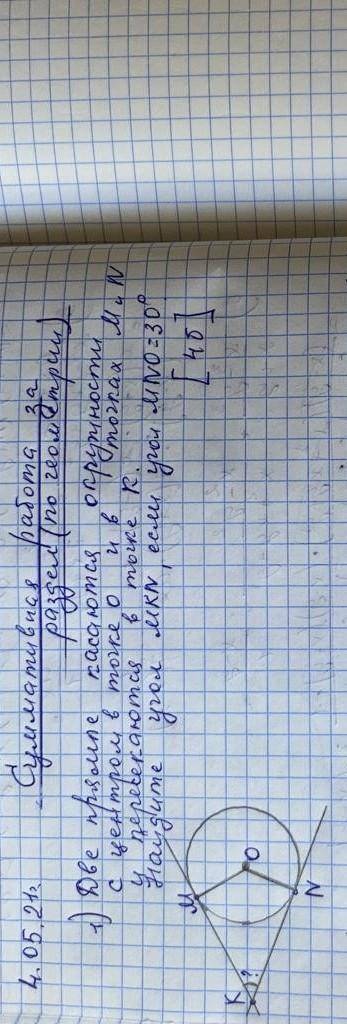 4.05.21г. Суммативная работа за
раздел (по геометрии)
1) Две прямые касаются окружности
с центром в точке О и в точках М и N
и пересекаются в точке К.
Найдите угол MKN, если угол MNO=30°
[4б]
М
К
?
О
N